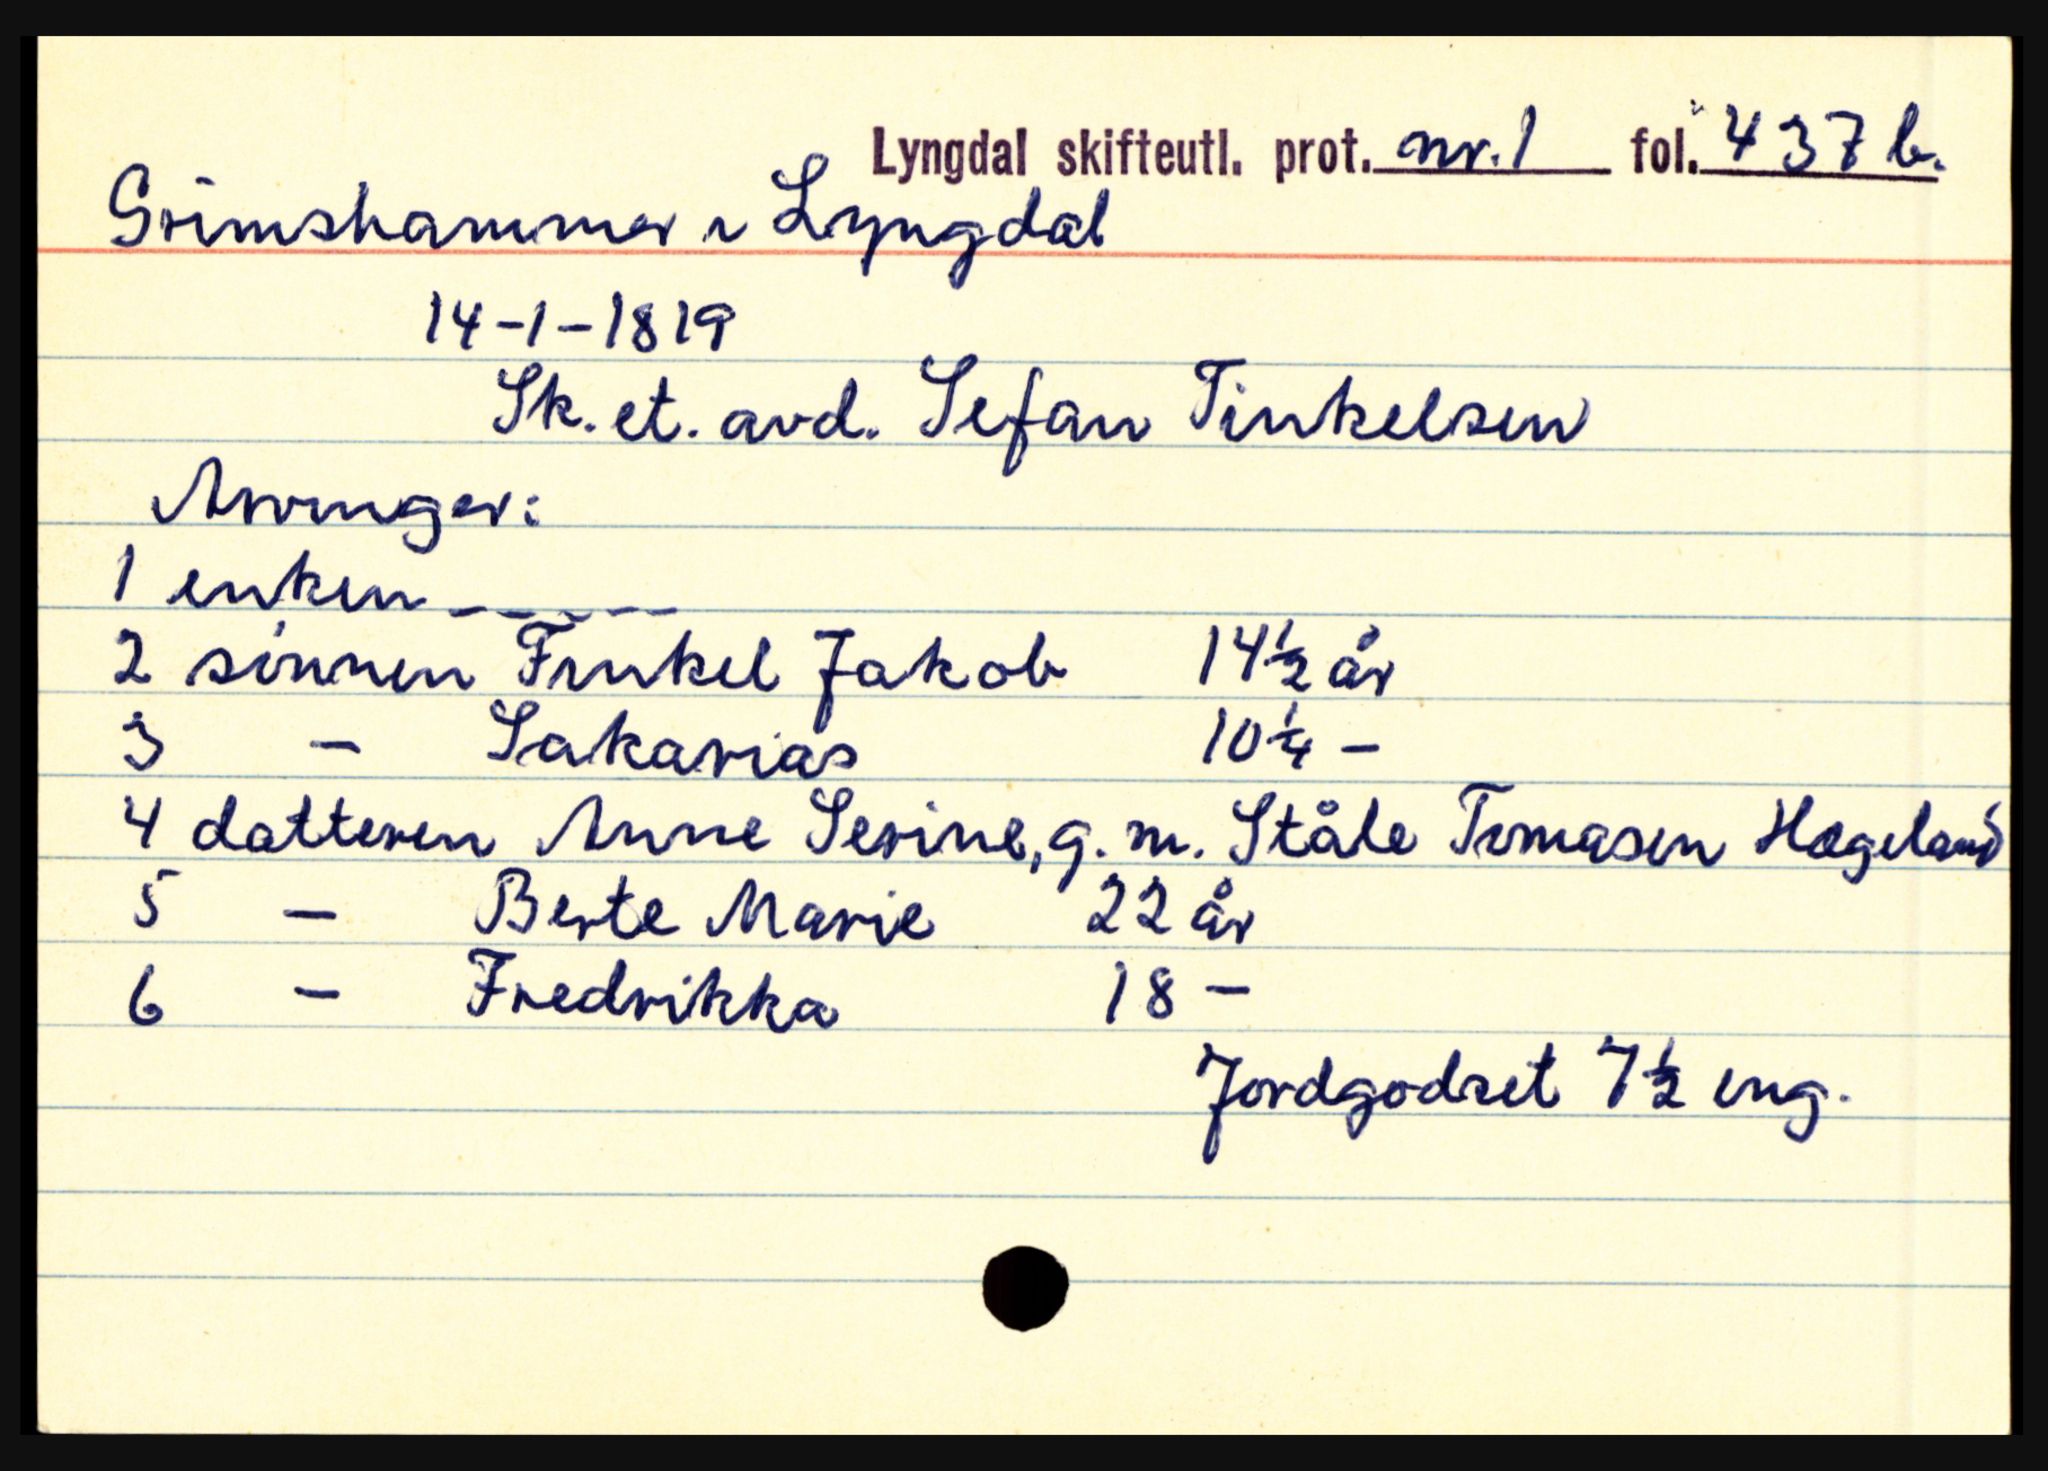 Lyngdal skifteutl. prot. nr. 1 fol. 437 b.
Grimshammer i Lyngdal
14-1-1819
Sk. et. avd. Sefan Tinkelsen
Arvinger:
1 enken -----
2 sønnen Finkel Jakob 14½ år
3 - Sakarias 10¼ -
4 datteren Anne Serine, g. m. Ståle Tomasen Hægeland
5 - Berte Marie 22 år
6 - Fredrikka 18 -
Jordgodset 7½ eng.